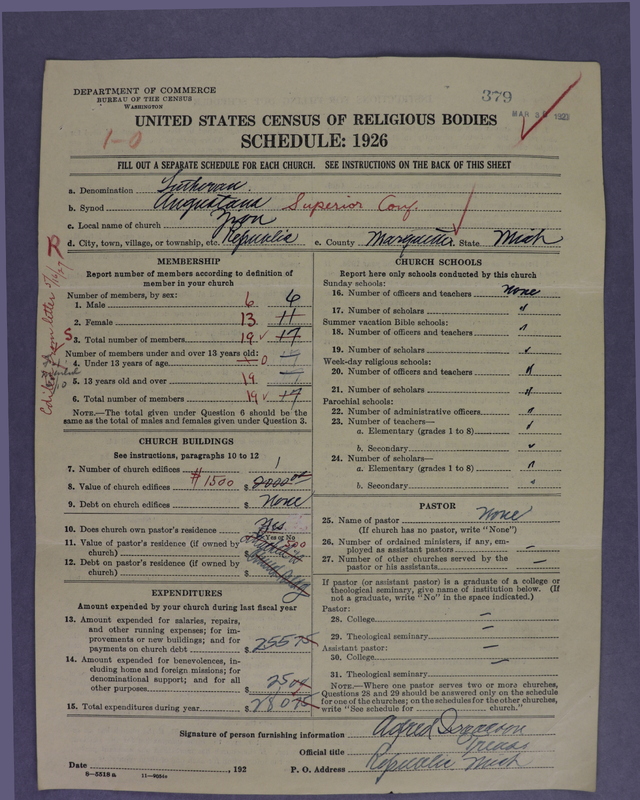 DEPARTMENT OF COMMERCE
BUREAU OF THE CENSUS
WASHINGTON
379
MAR 3
1-0
UNITED STATES CENSUS OF RELIGIOUS BODIES
SCHEDULE: 1926
FILL OUT A SEPARATE SCHEDULE FOR EACH CHURCH. SEE INSTRUCTIONS ON THE BACK OF THIS SHEET
a. Denomination Lutheran.
b. Synod Augustana Superior Conf.
c. Local name of church Zion
d. City, town, village, or township, etc. Republic e. County Marquette. State Mich
MEMBERSHIP
Report number of members according to definition of
member in your church
Number of members, by sex:
1. Male 6 6
2. Female 13 11
3. Total number of members 19 17
Number of members under and over 13 years old:
4. Under 13 years of age 0
5. 13 years old and over 19
6. Total number of members 19 17
NOTE.—The total given under Question 6 should be
same as the total of males and females given under Question 3.
CHURCH BUILDINGS
See instructions, paragraphs 10 to 12
7. Number of church edifices 1
8. Value of church edifices #1500 $ 2000.00
9. Debt on church edifices $ None
10. Does church own pastor's residence Yes
Yes or No
11. Value of pastor's residence (if owned by
church) 500
12. Debt on pastor's residence (if owned by
church)
EXPENDITURES
Amount expended by your church during last fiscal year
13. Amount expended for salaries, repairs,
and other running expenses; for im-
provements or new buildings; and for
payments on church debt $ 255 75
14. Amount expended for benevolences,
including home and foreign missions; for
denominational support; and for all
other purposes 25 00
15. Total expenditures during year $ 280 75
CHURCH SCHOOLS
Report here only schools conducted by this church
Sunday schools:
16. Number of officers and teachers none
17. Number of scholars "
Summer vacation Bible schools:
18. Number of officers and teachers "
19. Number of scholars "
Week-day religious schools:
20. Number of officers and teachers "
21. Number of scholars "
Parochial schools:
22. Number of administrative officers "
23. Number of teachers—
a. Elementary (grades 1 to 8) "
b. Secondary "
24. Number of scholars—
a. Elementary (grades 1 to 8) "
b. Secondary "
PASTOR
25. Name of pastor None
(If church has no pastor, write "None")
26. Number of ordained ministers, if any, em-
ployed as assistant pastors —
27. Number of other churches served by the
pastor or his assistants —
If pastor (or assistant pastor) is a graduate of a college or
theological seminary, give name of institution below. (If
not a graduate, write "No" in the space indicated.)
Pastor:
28. College —
29. Theological seminary —
Assistant pastor:
30. College —
31. Theological seminary
NOTE.—Where one pastor serves two or more churches,
Questions 28 and 29 should be answered only on the schedule
for one of the churches; on the schedules for the other churches,
write "See schedule for church."
Signature of person furnishing information Alfred Isaacson
Official title Treas
Date , 192 P. O. Address Republic Mich
8-5518 a 11-9654